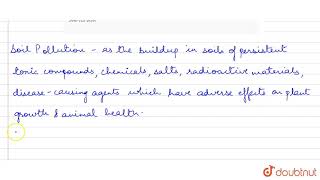 Soil Pollution - as the buildup in soils of persistent
tonic compounds, chemicals, salts, radioactive materials,
disease-causing agents which have adverse effects on plant
growth & animal health.
doubtnut